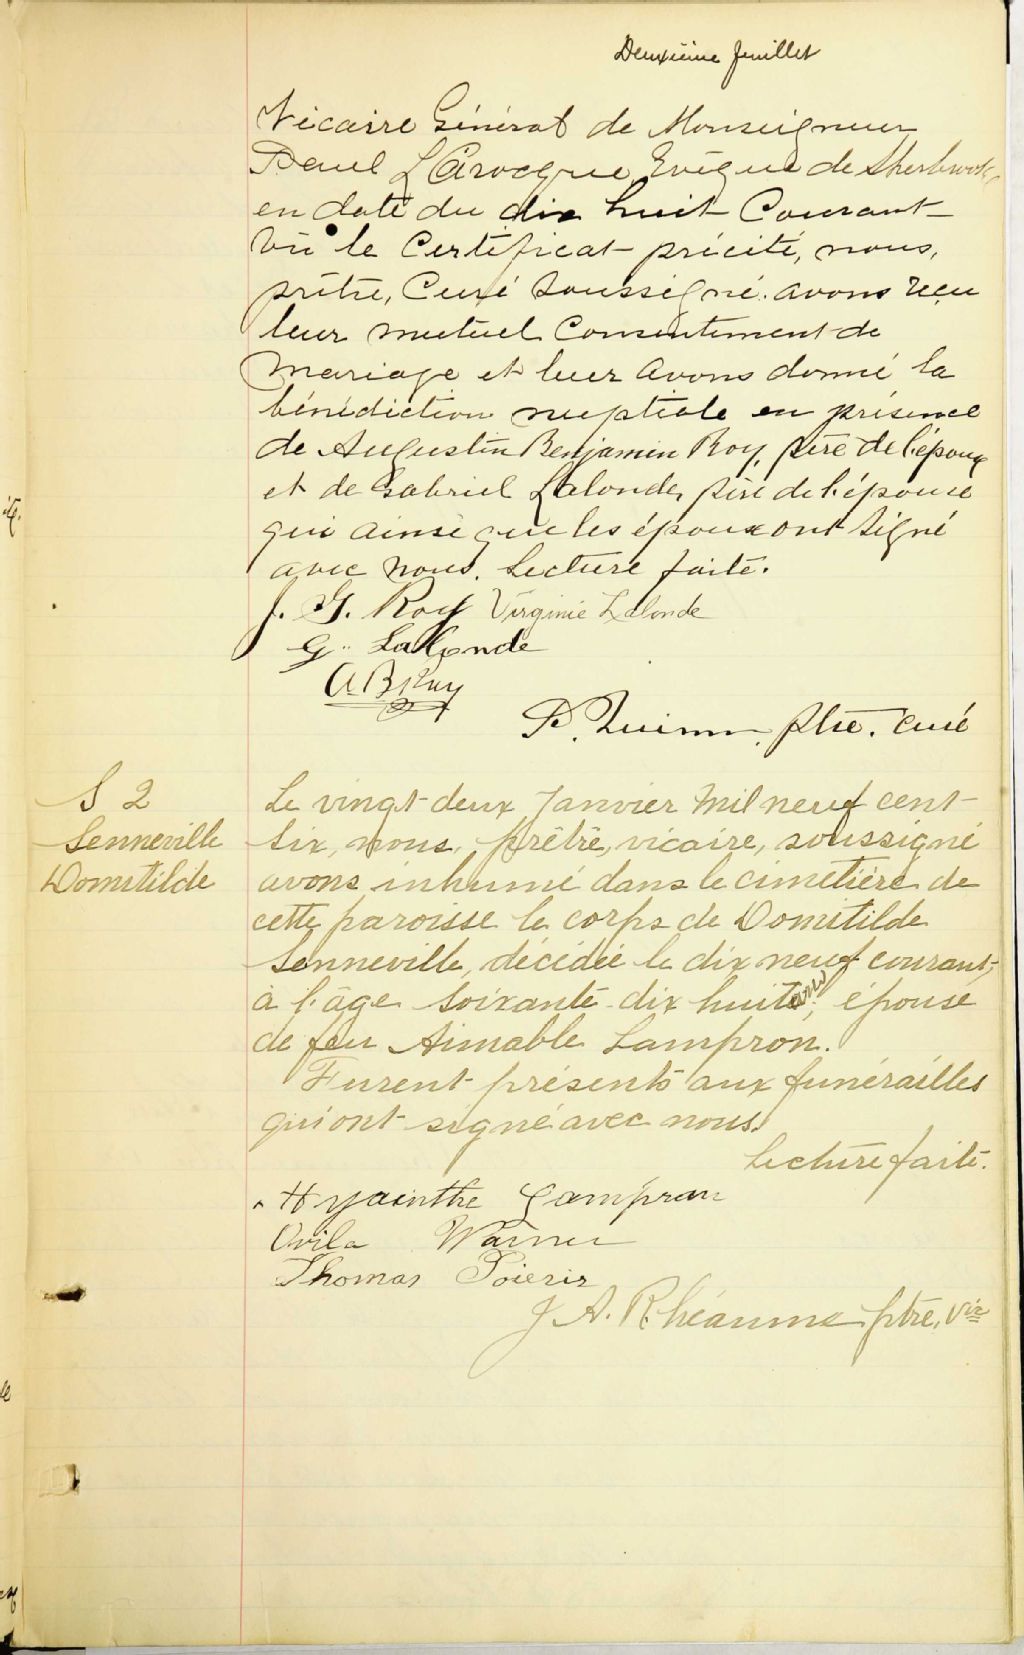 Deuxième feuillet
Vicaire Général de Monseigneur
Paul LaRocque, Evêque de Sherbrooke
en date du dix huit Courant
Vu le Certificat précité, nous,
prêtre, Curé soussigné. avons reçu
leur mutuel Consentement de
Mariage et leur avons donné la
bénédiction nuptiale en présence
de Augustin Benjamin Roy, père de l'époux
et de Gabriel Lalonde, père de l'épouse
qui ainsi que les époux ont signé
avec nous. Lecture faite.
J. G. Roy Virginie Lalonde
G. Lalonde
A B Roy
P. Quinn, ptre. curé
S 2
Senneville
Domitilde
Le vingt-deux Janvier Mil neuf cent
six, nous, prêtre, vicaire, soussigné
avons inhumé dans le cimetière de
cette paroisse le corps de Domitilde
Senneville, décédée le dix neuf courant,
à l'âge soixante-dix huit ans, épouse
de feu Aimable Lampron.
Furent présents aux funérailles
qui ont signé avec nous.
Lecture faite.
Hyacinthe Lampron
Ovila Warner
Thomas Poierir
J A. Rhéaume ptre, vic